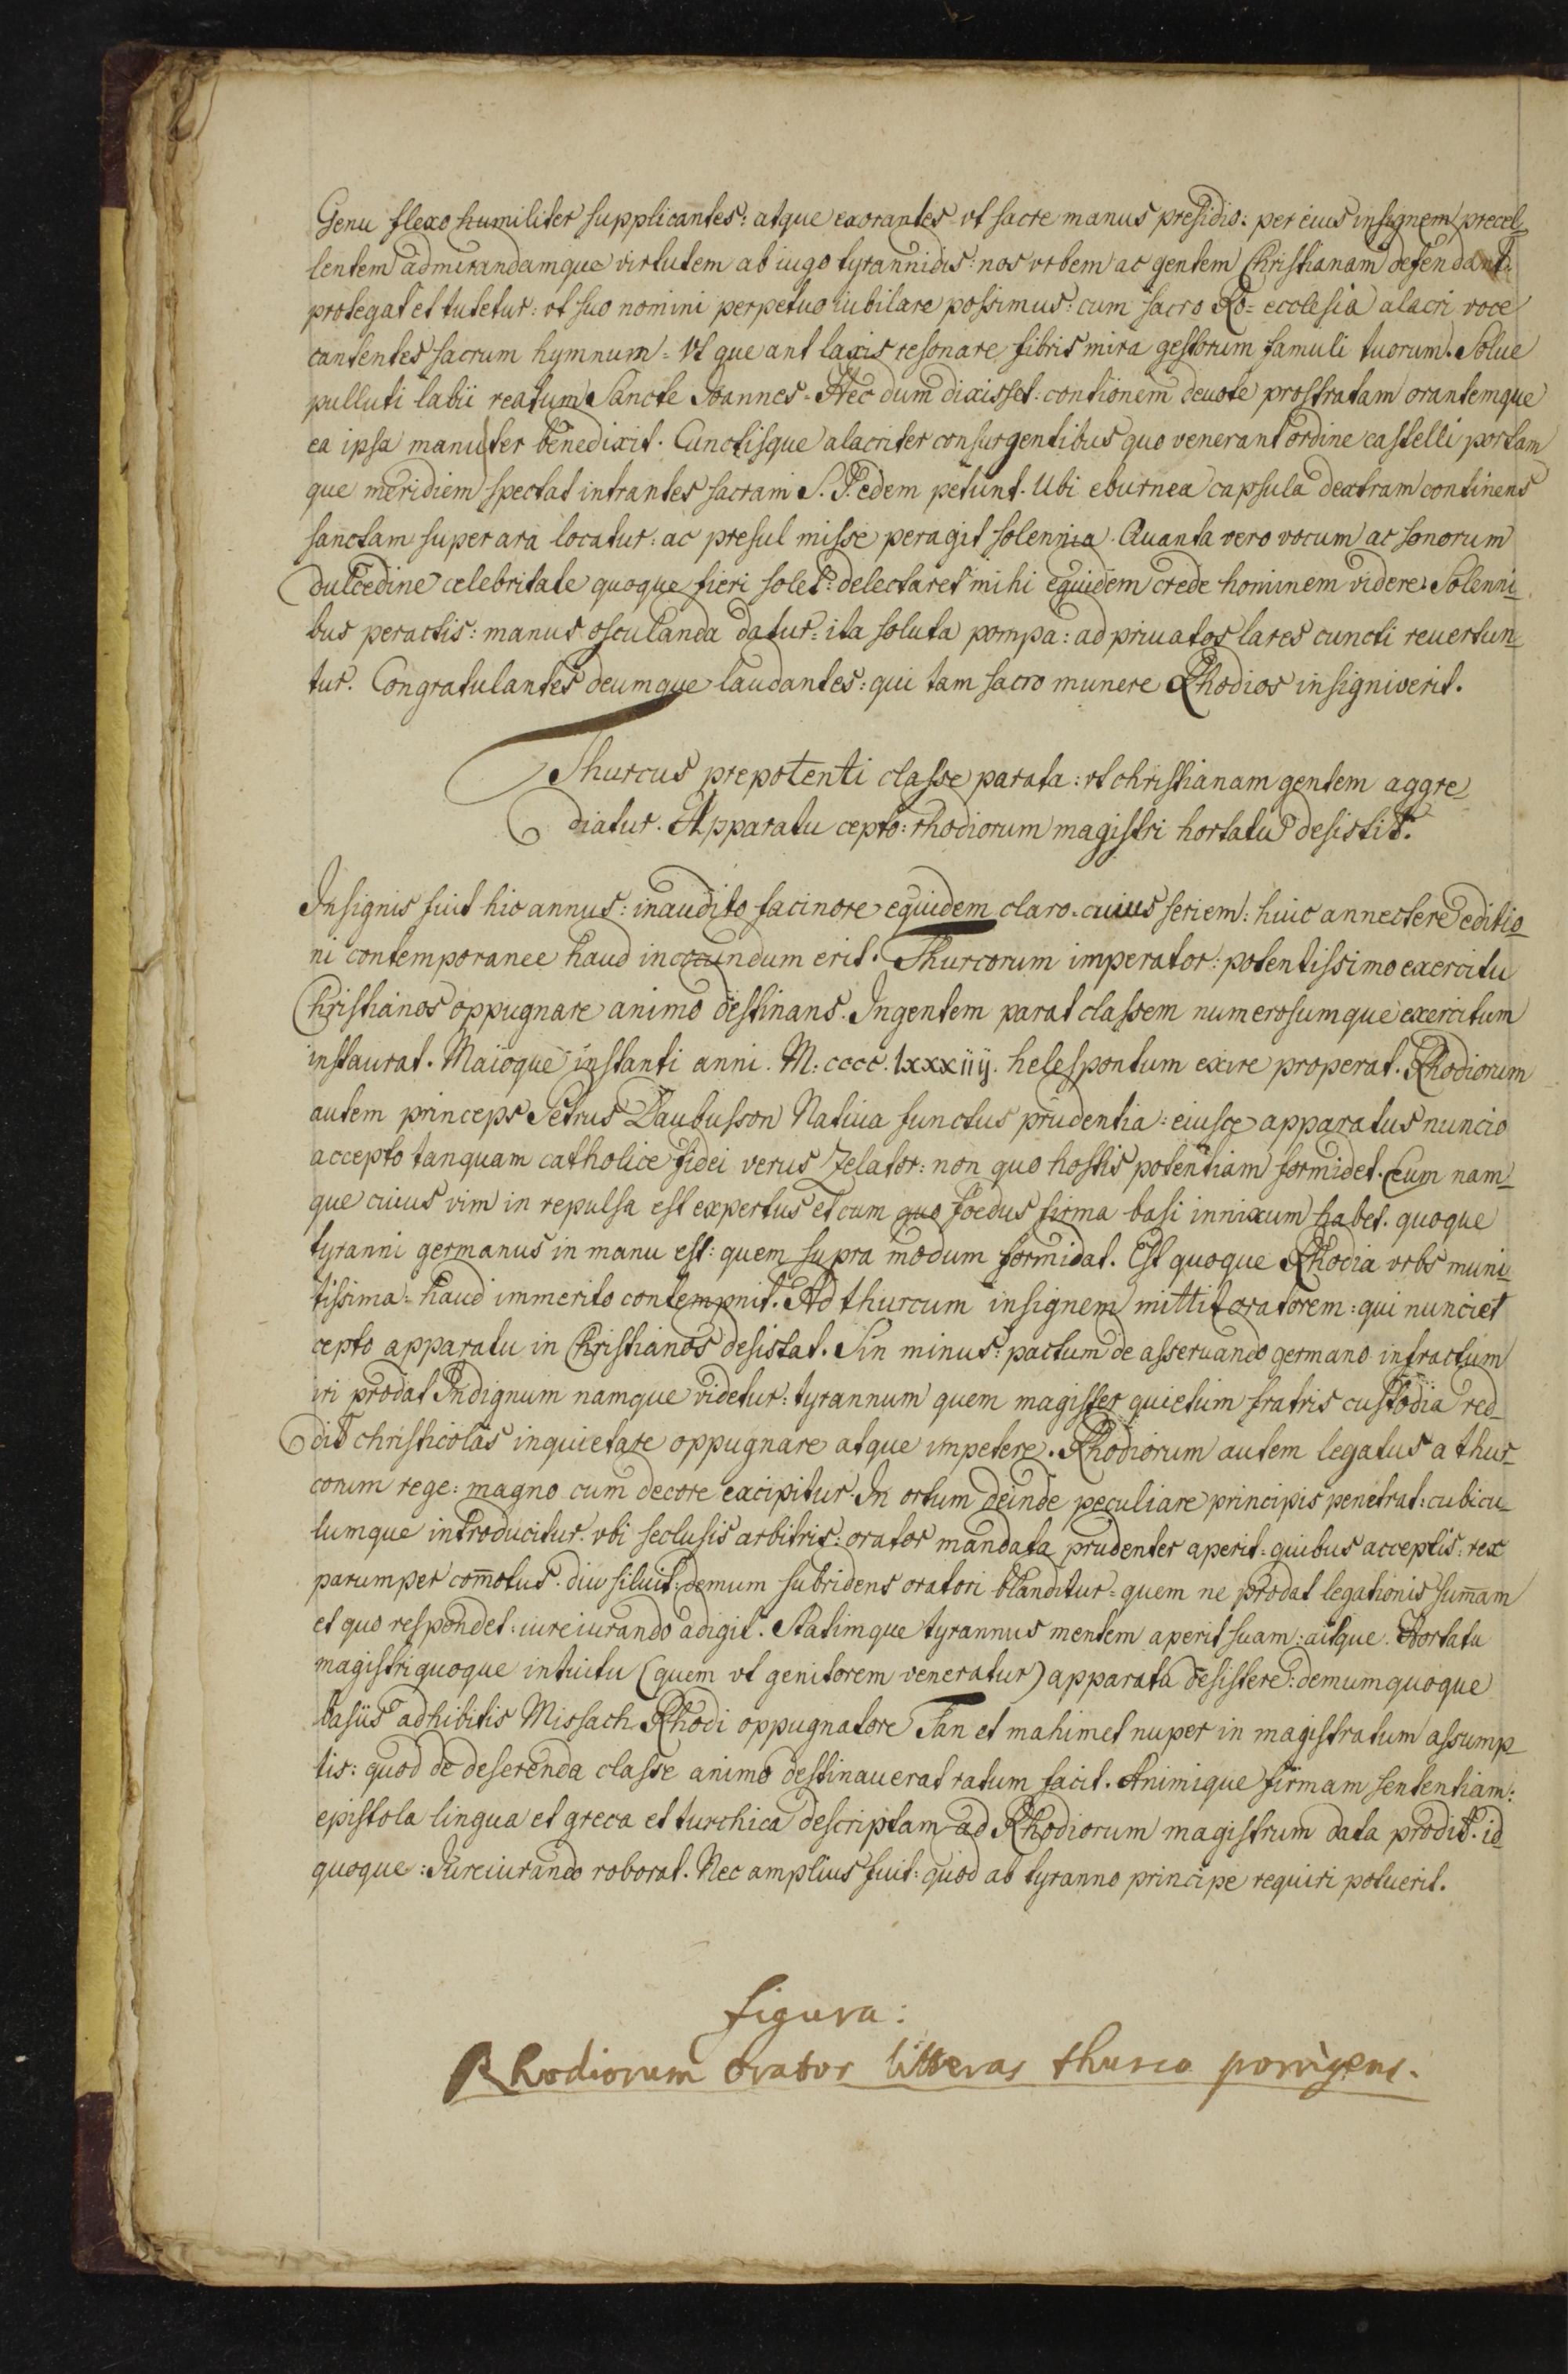 Genu flexo humiliter supplicantes: atque exorantes vt sacre manus presidio: per eius insignem precel-
lentem admirandamque virtutem ab iugo tyrannidis: nos vrbem ac gentem Christianam defendant:
protegat et tutetur: vt suo nomini perpetuo iubilare possimus: cum sacro Ro= ecclesia alacri voce
cantentes sacrum hymnum= Vt que ant laxis resonare fibris mira gestorum famuli tuorum. Solue
pulluti labii reatum Sancte Ioannes= Hec dum dixisset: contionem deuote prostratam orantemque
ea ipsa manu ter benedixit. Cunctisque alacriter consurgentibus quo venerant ordine castelli portam
que meridiem spectat intrantes sacram S. P. edem petunt. Ubi eburnea capsula dextram continens
sanctam super ara locatur: ac presul misse peragit solennia. Quanta vero vocum ac sonorum
dulcedine celebritate quoque fieri solet: delectaret mihi equidem crede hominem videre. Solenni-
bus peractis: manus osculanda datur= ita soluta pompa: ad priuatos lares cuncti reuertun-
tur. Congratulantes deumque laudantes: qui tam sacro munere Rhodios insigniverit.
Thurcus prepotenti classe parata: vt christianam gentem aggre-
diatur. Apparatu cepto: rhodiorum magistri hortatu desistit.
Insignis fuit hic annus: inaudito facinore equidem claro. cuius seriem: huic annectere editio-
ni contemporanee haud incocundum erit. Thurcorum imperator: potentissimo exercitu
Christianos oppugnare animo destinans. Ingentem parat classem numerosumque exercitum
instaurat. Maioque instanti anni. M: cccc. lxxxiiij. helespontum exire properat. Rhodiorum
autem princeps Petrus Daubusson Natiua functus prudentia: eiusce apparatus nuncio
accepto tanquam catholice fidei verus Zelator: non quo hostis potentiam formidet. Eum nam-
que cuius vim in repulsa est expertus et cum quo foedus firma basi innixum habet. quoque
tyranni germanus in manu est: quem supra modum formidat. Est quoque Rhodia vrbs muni-
tissima= haud immerito contempnit. Ad thurcum insignem mittit oratorem: qui nunciet
cepto apparatu in Christianos desistat. Sin minus: pactum de asseruando germano infractum
iri prodat Indignum namque videtur: tyrannum quem magister quietum fratris custodia red-
dit christicolas inquietare oppugnare atque impetere. Rhodiorum autem legatus a thur-
corum rege: magno cum decore excipitur. In ortum deinde peculiare principis penetrat: cubicu-
lumque introducitur. vbi seclusis arbitris: orator mandata prudenter aperit. quibus acceptis: rex
parumper com̄otus. diu siluit: demum subridens oratori blanditur= quem ne prodat legationis sum̄am
et quo respondet: iureiurando adigit. Statimque tyrannus mentem aperit suam: aitque. Hortatu
magistri quoque intuitu (quem vt genitorem veneratur) apparatu desistere: demum quoque
basiis adhibitis Missach Rhodi oppugnatore Tan et mahimet nuper in magistratum assump-
tis: quod de deserenda classe animo destinauerat ratum facit. Animique firmam sententiam:
epistola lingua et greca et turchica descriptam ad Rhodiorum magistrum data prodit. id
quoque: Iureiurando roborat. Nec amplius fuit: quod ab tyranno principe requiri potuerit.
figura:
Rhodiorum orator litteras thurco porrigens.